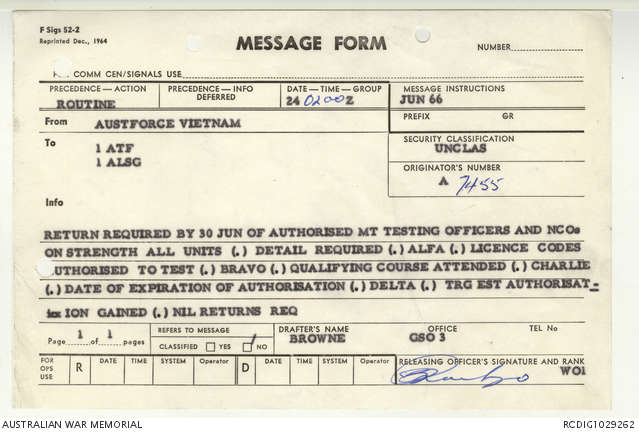 F Sigs 52-2
Reprinted Dec., 1964
MESSAGE FORM
NUMBER
COMM CEN/SIGNALS USE
PRECEDENCE—ACTION
ROUTINE
PRECEDENCE—INFO
DEFERRED
DATE—TIME—GROUP
24 0200 Z
MESSAGE INSTRUCTIONS
JUN 66
From AUSTFORCE VIETNAM
PREFIX GR
To 1 ATF
1 ALSG
SECURITY CLASSIFICATION
UNCLAS
ORIGINATOR'S NUMBER
A 7455
Info
RETURN REQUIRED BY 30 JUN OF AUTHORISED MT TESTING OFFICERS AND NCOs
ON STRENGTH ALL UNITS (.) DETAIL REQUIRED (.) ALFA (.) LICENCE CODES
AUTHORISED TO TEST (.) BRAVO (.) QUALIFYING COURSE ATTENDED (.) CHARLIE
(.) DATE OF EXPIRATION OF AUTHORISATION (.) DELTA (.) TRG EST AUTHORISAT-
ION GAINED (.) NIL RETURNS REQ
Page 1 of 1 pages
REFERS TO MESSAGE
CLASSIFIED YES NO
DRAFTER'S NAME
BROWNE
OFFICE
GSO 3
TEL No
FOR OPS USE
R DATE TIME SYSTEM Operator D DATE TIME SYSTEM Operator
RELEASING OFFICER'S SIGNATURE AND RANK
WO1
AUSTRALIAN WAR MEMORIAL
RCDIG1029262